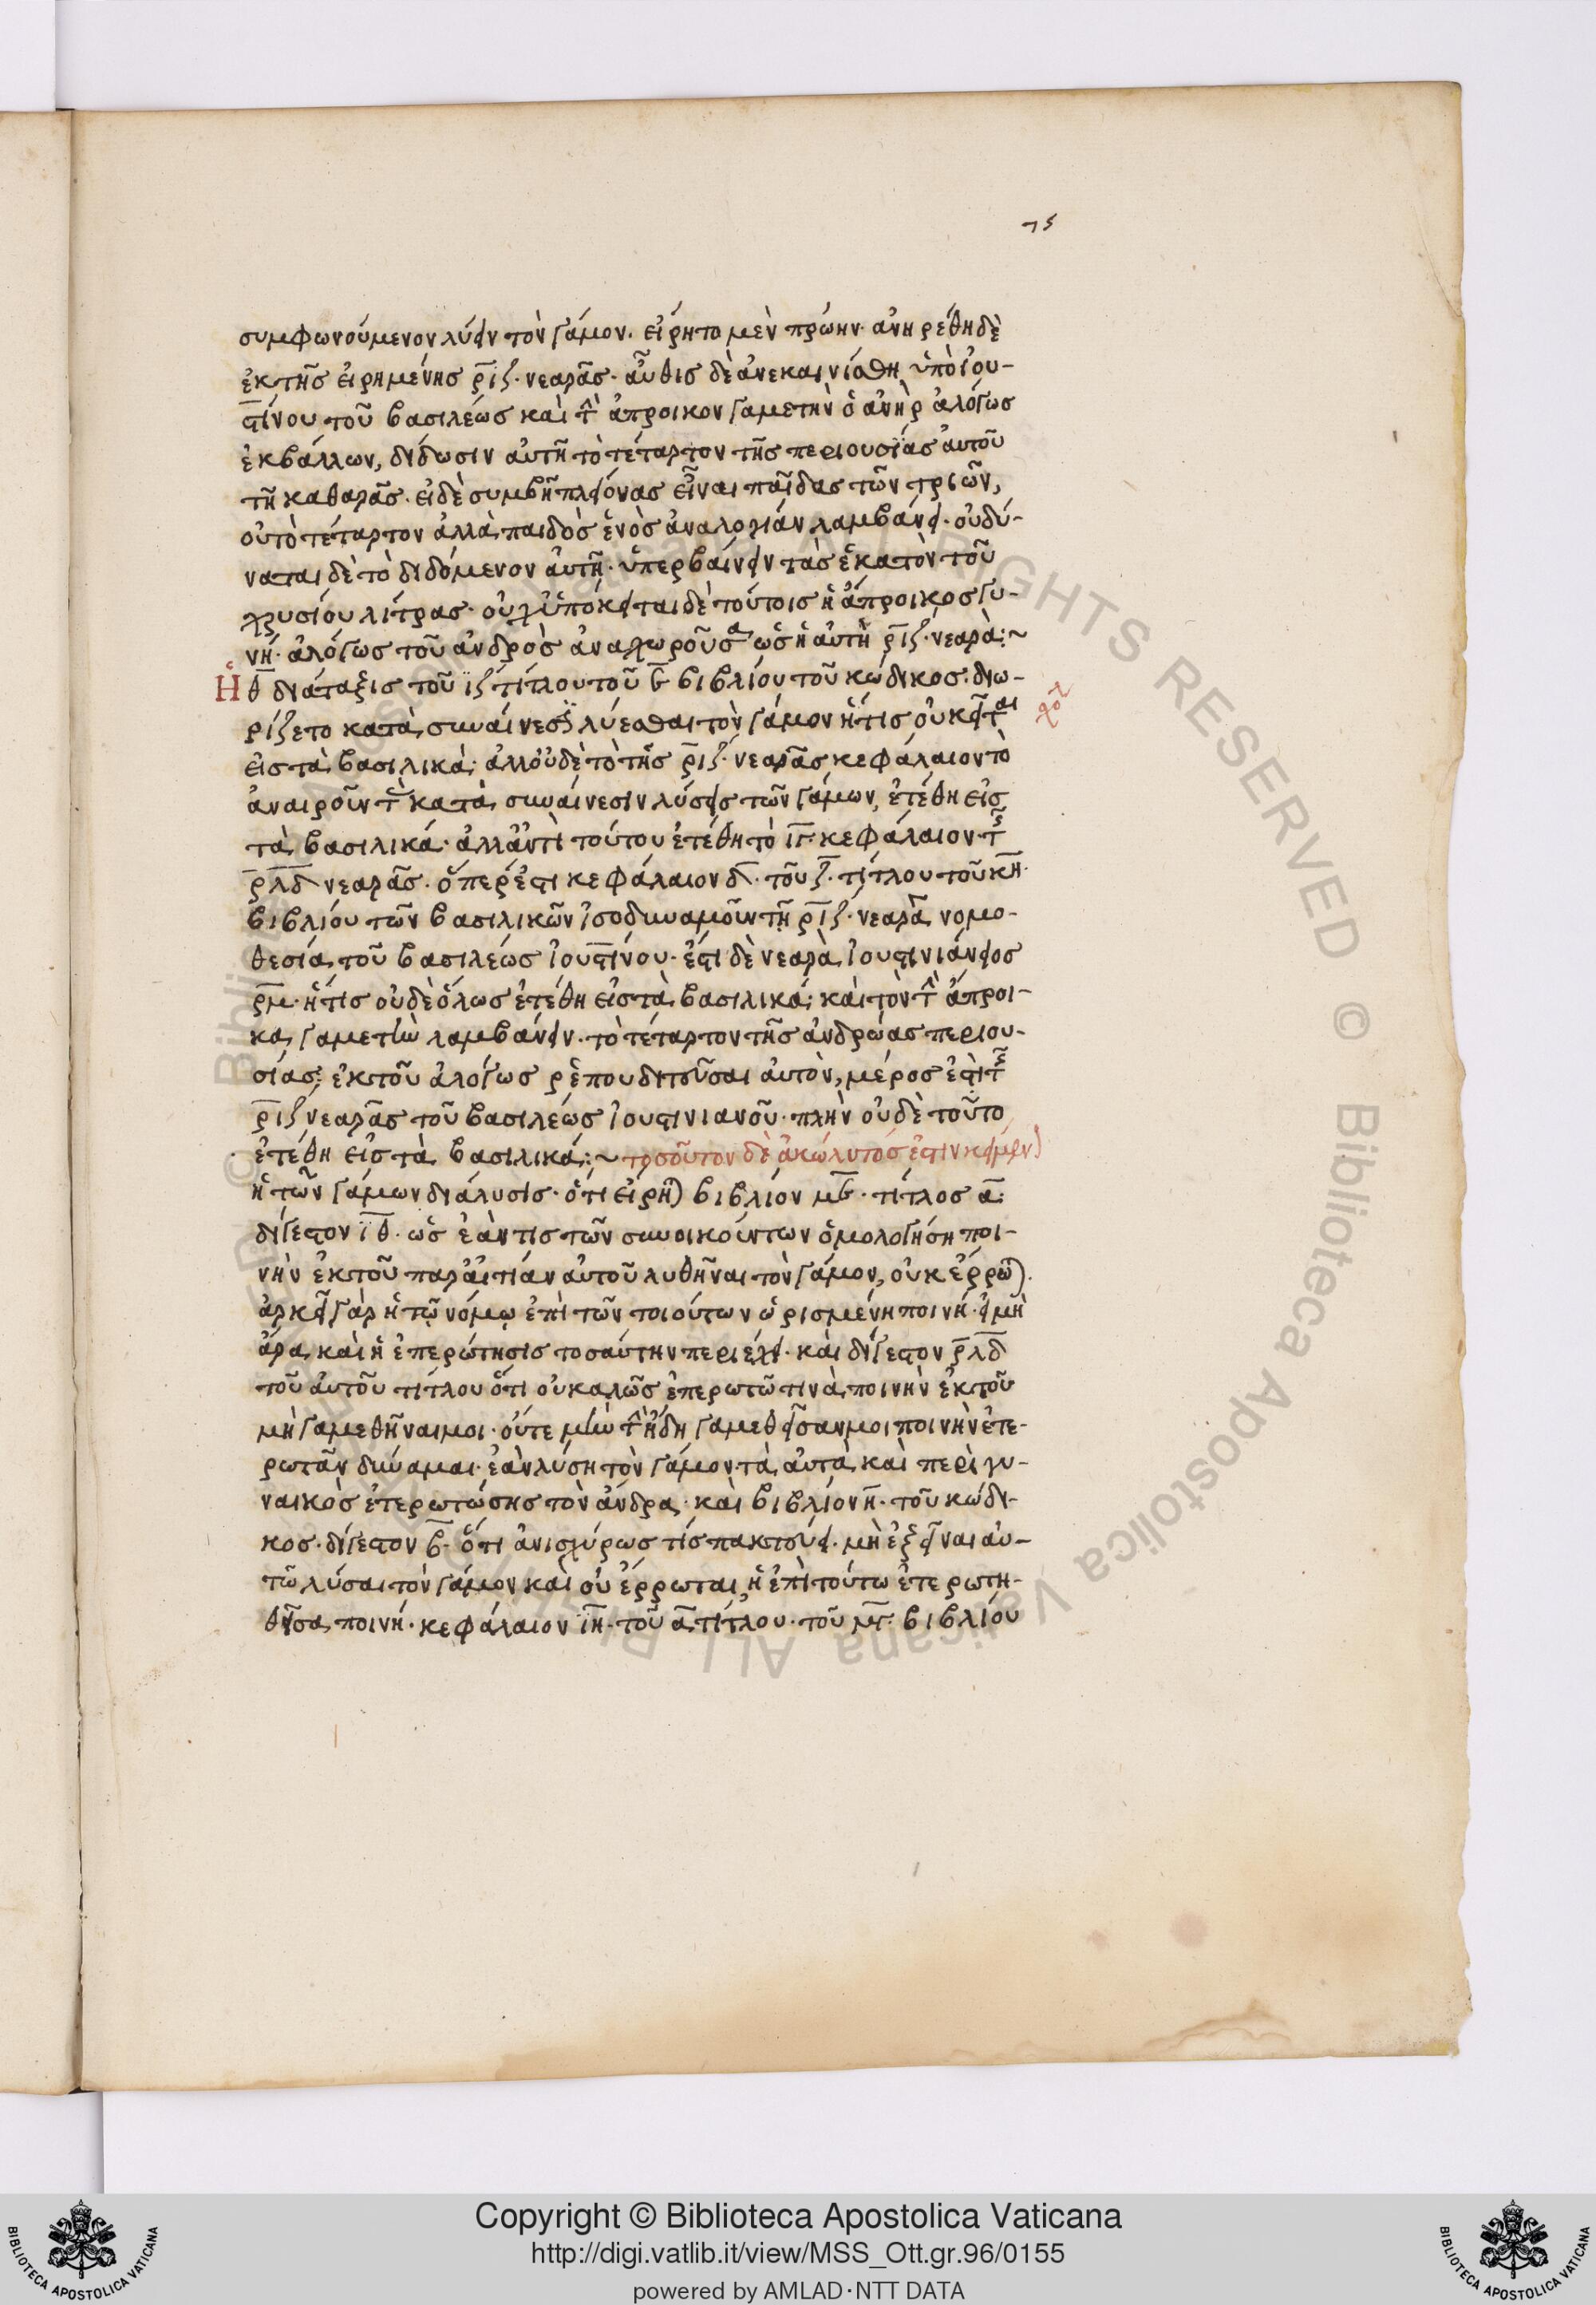 75
συμφωνούμενον λύειν τὸν γάμον. εἴρητο μὲν πρώην· ἀνῃρέθη δὲ
ἐκ τῆς εἰρημένης ριζ· νεαρᾶς· αὖθις δὲ ἀνεκαινίσθη ὑπὸ ἰου-
στίνου τοῦ βασιλέως καὶ τὴν ἄπροικον γαμετὴν ὁ ἀνὴρ ἀλόγως
ἐκβάλλων, δίδωσιν αὐτῆ τὸ τέταρτον τῆς περιουσίας αὐτοῦ
τῆ καθαρᾶς. εἰ δὲ συμβῆ πλείονας εἶναι παῖδας τῶν τριῶν,
οὐ τὸ τέταρτον ἀλλὰ παιδὸς ἑνὸς ἀναλογίαν λαμβάνει· οὐ δύ-
ναται δὲ τὸ διδόμενον αὐτῆ· ὑπερβαίνειν τὰς ἑκατὸν τοῦ
χρυσίου λίτρας· οὐχ ὑπόκειται δὲ τούτοις ἡ ἄπροικος γυ-
νή· ἀλόγως τοῦ ἀνδρὸς ἀναχωροῦσα ὡς ἡ αὐτὴ ριζ· νεαρὰ:~
Ἡ θ διάταξις τοῦ ιζ τίτλου τοῦ β βιβλίου τοῦ κώδικος· διω-
ρίζετο κατὰ συναίνεσιν λύεσθαι τὸν γάμον ἥτις οὐ κεῖται
σχολ
εἰς τὰ βασιλικὰ· ἀλλ' οὐδὲ τὸ τῆς ριζ· νεαρᾶς κεφάλαιον τὸ
ἀναιροῦν τὰς κατὰ συναίνεσιν λύσεις τῶν γάμων, ἐτέθη εἰς
τὰ βασιλικά· ἀλλ' ἀντὶ τούτου ἐτέθη τὸ ιγ· κεφάλαιον τῆς
ρλδ νεαρᾶς· ὅπερ ἐστι κεφάλαιον δ· τοῦ ζ· τίτλου τοῦ κη·
βιβλίου τῶν βασιλικῶν ἰσοδυναμοῦν τῆ ριζ· νεαρᾶ νομο-
θεσία τοῦ βασιλέως ἰουστίνου· ἔστι δὲ νεαρὰ ἰουστινιάνειος
ρμ· ἥτις οὐδὲ ὅλως ἐτέθη εἰς τὰ βασιλικά· καὶ τὸν τὴν ἄπροι-
κα γαμετὴν λαμβάνειν· τὸ τέταρτον τῆς ἀνδρώας περιου-
σίας· ἐκ τοῦ ἀλόγως ῥεπουδιτεῦσαι αὐτὸν, μέρος ἐστὶ τῆς
ριζ νεαρᾶς τοῦ βασιλέως ἰουστινιανοῦ· πλὴν οὐδὲ τοῦτο
ἐτέθη εἰς τὰ βασιλικά:~ τοσοῦτον δὲ ἀκώλυτός ἐστιν
ἡ τῶν γάμων διάλυσις· ὅτι εἴρηται βιβλίον μβ· τίτλος α·
δίγεστον ιθ· ὡς ἐάν τις τῶν συνοικούντων ὁμολογήση ποι-
νὴν ἐκ τοῦ παρ' αἰτίαν αὐτοῦ λυθῆναι τὸν γάμον, οὐκ ἔρρωται.
ἀρκεῖ γὰρ ἡ τῷ νόμῳ ἐπὶ τῶν τοιούτων ὡρισμένη ποινή· εἰ μὴ
ἄρα καὶ ἡ ἐπερώτησις τοσαύτην περιέχει· καὶ δίγεστον ρλδ
τοῦ αὐτοῦ τίτλου ὅτι οὐ καλῶς ἐπερωτῶ τινὰ ποινὴν ἐκ τοῦ
μὴ γαμεθῆναι μοι· οὔτε μὴν τὴν ἤδη γαμεθεῖσαν μοι ποινὴν ἐπε-
ρωτᾶν δύναμαι· ἐὰν λύση τὸν γάμον τὰ αὐτὰ καὶ περὶ γυ-
ναικὸς ἐπερωτώσης τὸν ἄνδρα· καὶ βιβλίον η· τοῦ κώδι-
κος· δίγεστον β· ὅτι ἀνισχύρως τίς πακτεύει· μὴ ἐξεῖναι αὐ-
τῶ λύσαι τὸν γάμον καὶ οὐ ἔρρωται, ἡ ἐπὶ τούτω ἐπερωτη-
θεῖσα ποινή· κεφάλαιον ιη· τοῦ α τίτλου· τοῦ μγ· βιβλίου
Copyright © Biblioteca Apostolica Vaticana
http://digi.vatlib.it/view/MSS_Ott.gr.96/0155
powered by AMLAD·NTT DATA